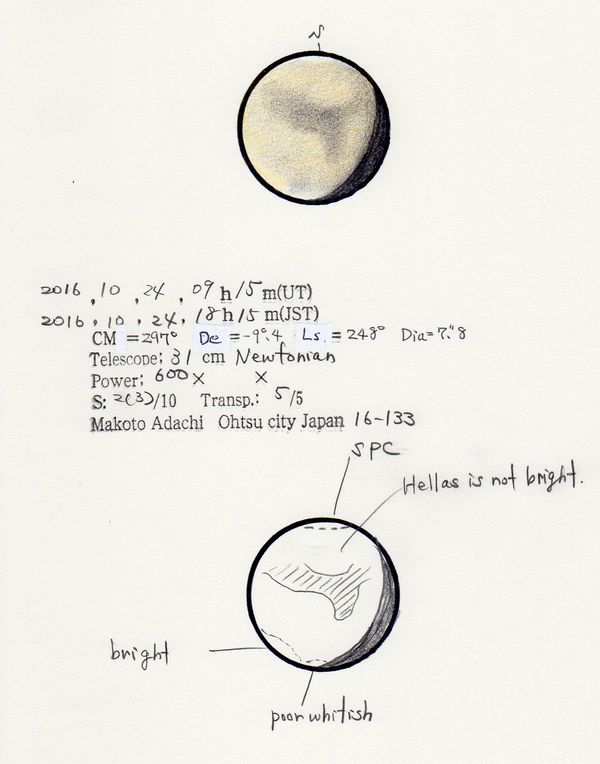 S
2016 , 10 , 24 , 09 h 15 m(UT)
2016 , 10 , 24 , 18 h 15 m(JST)
CM = 297° De = -9°.4 Ls = 248° Dia= 7."8
Telescope; 31 cm Newtonian
Power; 600 × ×
S: 2(3)/10 Transp.: 5 /5
Makoto Adachi Ohtsu city Japan 16-133
SPC
Hellas is not bright.
bright
poor whitish